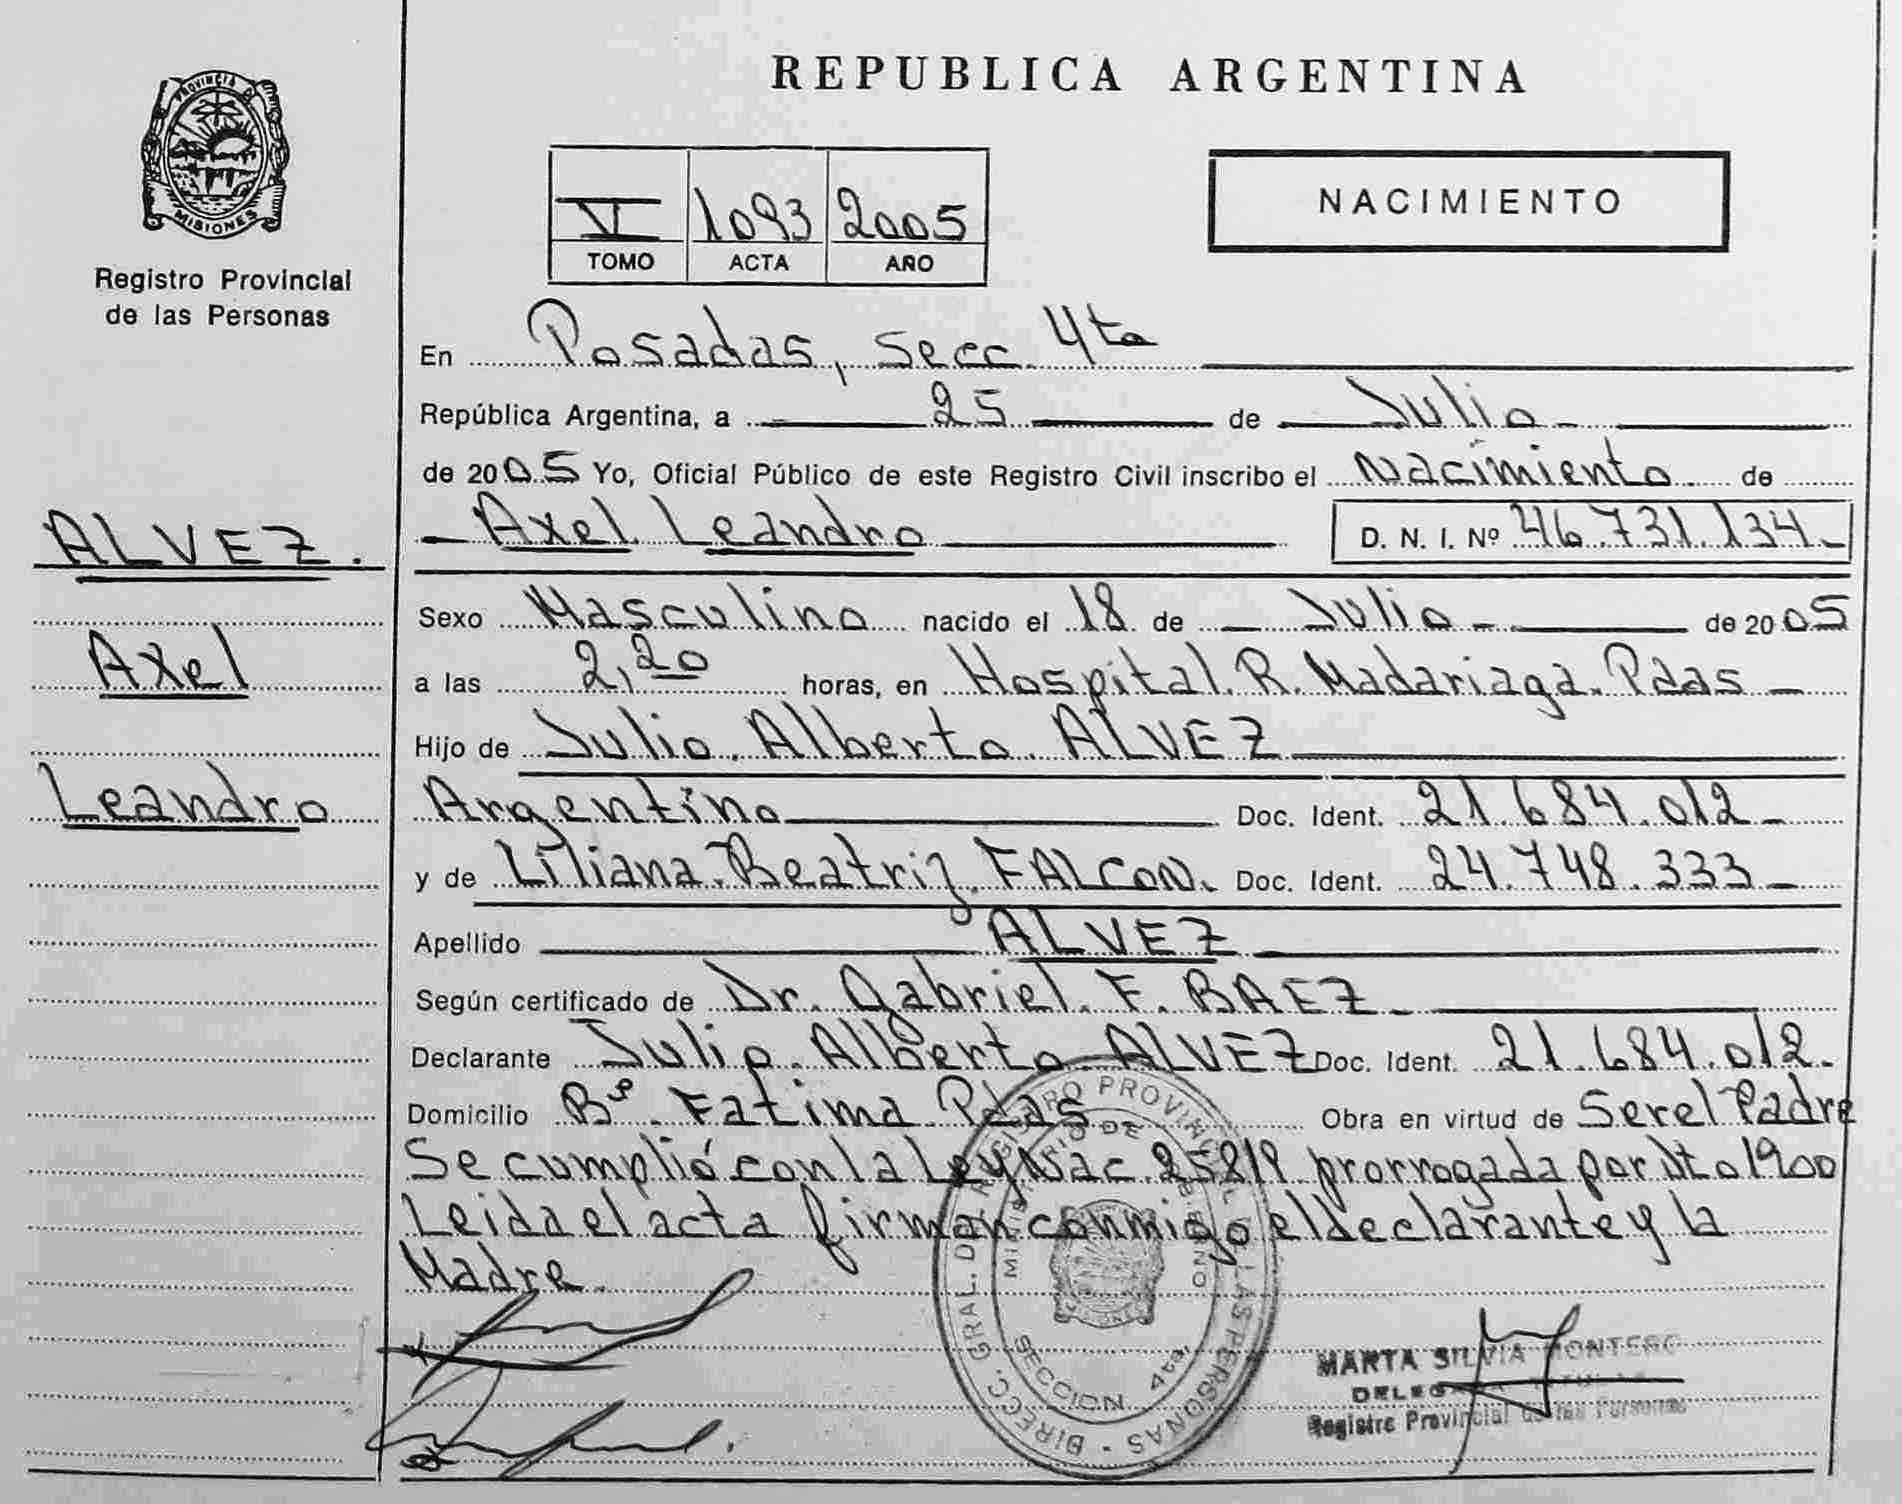 REPUBLICA ARGENTINA
PROVINCIA DE
MISIONES
Registro Provincial
de las Personas
VI 1093 2005
TOMO ACTA AÑO
NACIMIENTO
En Posadas, Secc. 4ta
República Argentina, a 25 de Julio
de 2005 Yo, Oficial Público de este Registro Civil inscribo el Nacimiento de
Axel Leandro D. N. I. Nº 46.731.134.
ALVEZ.
Axel
Leandro
Sexo Masculino nacido el 18 de Julio de 2005
a las 2,20 horas, en Hospital. R. Madariaga. Pdas
Hijo de Julio Alberto ALVEZ
Argentino Doc. Ident. 21.684.012
y de Liliana Beatriz FALCON. Doc. Ident. 24.748.333
Apellido ALVEZ
Según certificado de Dr. Gabriel F. BAEZ
Declarante Julio Alberto ALVEZ Doc. Ident. 21.684.012.
Domicilio Bº Fatima Pdas Obra en virtud de Ser el Padre
Se cumplió con la Ley Nac. 25819 prorrogada por Dto 1900
Leida el acta firman conmigo el declarante y la
Madre.
DIRECC. GRAL. DEL REGISTRO PROVINCIAL DE LAS PERSONAS
MINISTERIO DE GOBIERNO
SECCION 4ta.
MARTA SILVIA MONTERO
Registro Provincial de las Personas